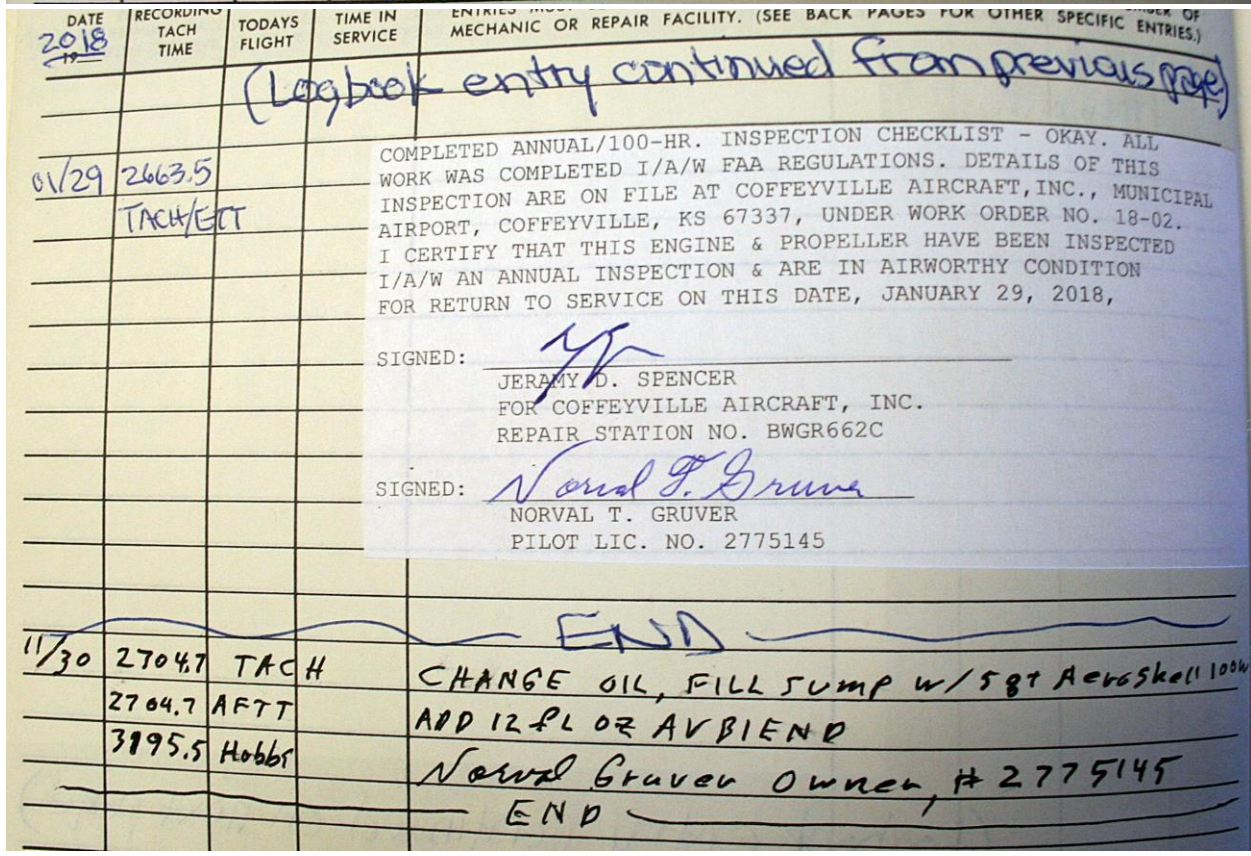 DATE RECORDING TACH TIME TODAYS FLIGHT TIME IN SERVICE
MECHANIC OR REPAIR FACILITY. (SEE BACK PAGES FOR OTHER SPECIFIC ENTRIES.)
2018
(Logbook entry continued from previous page)
01/29 2663.5
TACH/ETT
COMPLETED ANNUAL/100-HR. INSPECTION CHECKLIST - OKAY. ALL
WORK WAS COMPLETED I/A/W FAA REGULATIONS. DETAILS OF THIS
INSPECTION ARE ON FILE AT COFFEYVILLE AIRCRAFT,INC., MUNICIPAL
AIRPORT, COFFEYVILLE, KS 67337, UNDER WORK ORDER NO. 18-02.
I CERTIFY THAT THIS ENGINE & PROPELLER HAVE BEEN INSPECTED
I/A/W AN ANNUAL INSPECTION & ARE IN AIRWORTHY CONDITION
FOR RETURN TO SERVICE ON THIS DATE, JANUARY 29, 2018,
SIGNED:
JERAMY D. SPENCER
FOR COFFEYVILLE AIRCRAFT, INC.
REPAIR STATION NO. BWGR662C
SIGNED: Norval T. Gruver
NORVAL T. GRUVER
PILOT LIC. NO. 2775145
END
11/30 2704.7 TACH CHANGE OIL, FILL SUMP w/ 5 qt AeroShell 100W
2704.7 AFTT ADD 12 fL OZ AVBlEND
3895.5 Hobbs Norval Gruver Owner, # 2775145
END